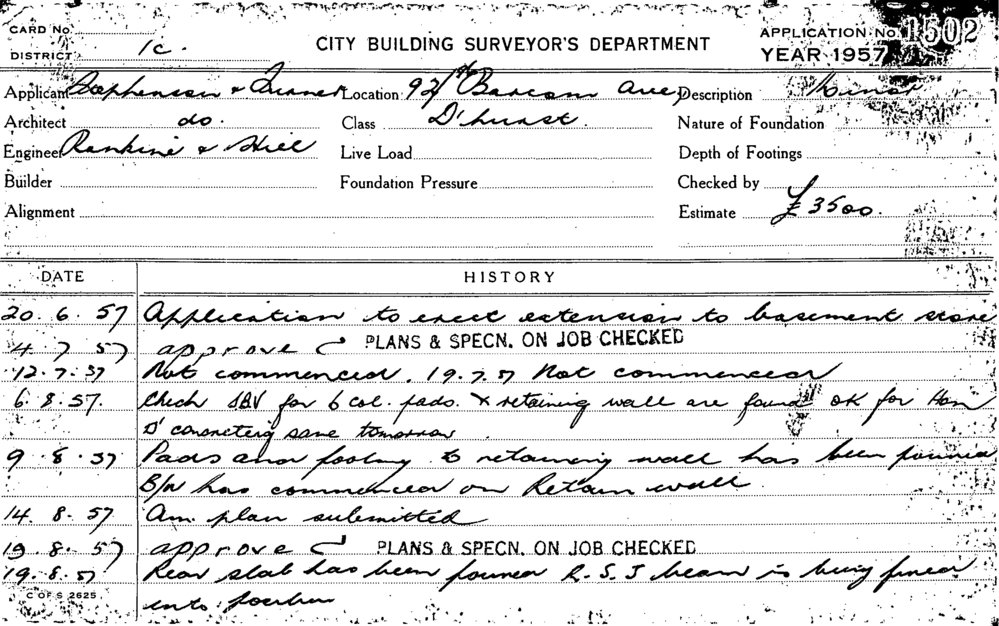 CARD No.
DISTRICT 1c.
CITY BUILDING SURVEYOR'S DEPARTMENT
APPLICATION No. 1502
YEAR 1957
Applicant Stephenson & Turner Location 92 Barcom Ave, Description Minor
Architect do. Class D'hurst. Nature of Foundation
Engineer Rankine & Hill Live Load Depth of Footings
Builder Foundation Pressure Checked by
Alignment Estimate £3500.
DATE HISTORY
20. 6. 57 Application to erect extension to basement store
4. 7. 57 approve PLANS & SPECN. ON JOB CHECKED
12.7.57 Not commenced. 19.7.57 Not commenced
6. 8. 57. Check for 6 col. pads. & retaining wall are found OK for
concreting same tomorrow
9. 8. 57 Pads and footing to retaining wall has been poured
B/W has commenced on Retain wall
14. 8. 57 Am. plan submitted
19. 8. 57 approve PLANS & SPECN. ON JOB CHECKED
19. 8. 57 Rear slab has been poured R.S.J beam is being
into position
C OF S 2625